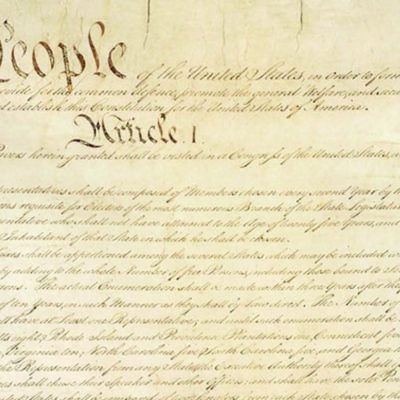 People of the United States, in order to form
provide for the common defence, promote the general Welfare, and secu
d establish this Constitution for the United States of America.
Article I.
Powers herein granted shall be vested in a Congress of the United States, w
presentatives shall be composed of Members chosen every second Year by the
ons requisite for Electors of the most numerous Branch of the State Legislatu
sentative who shall not have attained to the Age of twenty five Years, and
Inhabitant of that State in which he shall be chosen.
Taxes shall be apportioned among the several States which may be included w
by adding to the whole Number of free Persons, including those bound to Se
The actual Enumeration shall be made within three Years after the
of ten Years, in such Manner as they shall by Law direct. The Number of
ll have at Least one Representative; and until such enumeration shall be
eight, Rhode Island and Providence Plantations one, Connecticut five
Virginia ten, North Carolina five, South Carolina five, and Georgia t
the Representation from any State, the Executive Authority thereof shall
shall chuse their Speaker and other Officers; and shall have the sole Pow